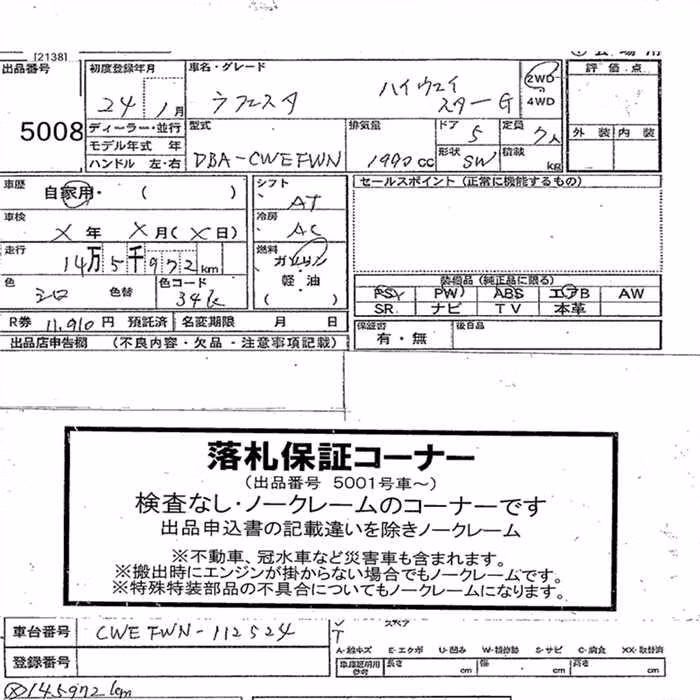 [2138]
出品番号
5008
初度登録年月
24 1月
車名・グレード
ラフェスタ ハイウェイ
スターG
2WD
4WD
評価点
外装 内装
ディーラー・並行
モデル年式 年
ハンドル 左・右
型式
DBA-CWEFWN
排気量
1990 cc
ドア
5
定員
7人
形状
SW
積載
kg
車歴
自家用・( )
シフト
AT
セールスポイント (正常に機能するもの)
車検
X年 X月(X日)
冷房
AC
走行
14万5千972km
燃料
ガソリン
軽・油
( )
色
シロ
色替
色コード
34k
装備品 (純正品に限る)
PSY PW ABS エアB AW
SR ナビ TV 本革
R券 11,910円 預託済
名変期限 月 日
保証書
有・無
後日品
出品店申告欄 (不良内容・欠品・注意事項記載)
落札保証コーナー
(出品番号 5001号車～)
検査なし・ノークレームのコーナーです
出品申込書の記載違いを除きノークレーム
※不動車、冠水車など災害車も含まれます。
※搬出時にエンジンが掛からない場合でもノークレームです。
※特殊特装部品の不具合についてもノークレームになります。
車台番号
CWEFWN-112524
スペア
T
A-線キズ E-エクボ U-凹み W-補修跡 S-サビ C-腐食 XX-取替済
登録番号
車庫証明用
参考
長さ cm
幅 cm
高さ cm
145972km